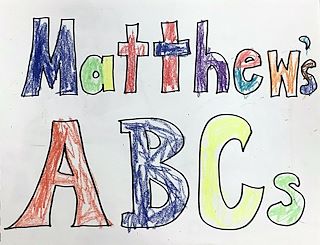 Matthew's
ABCs